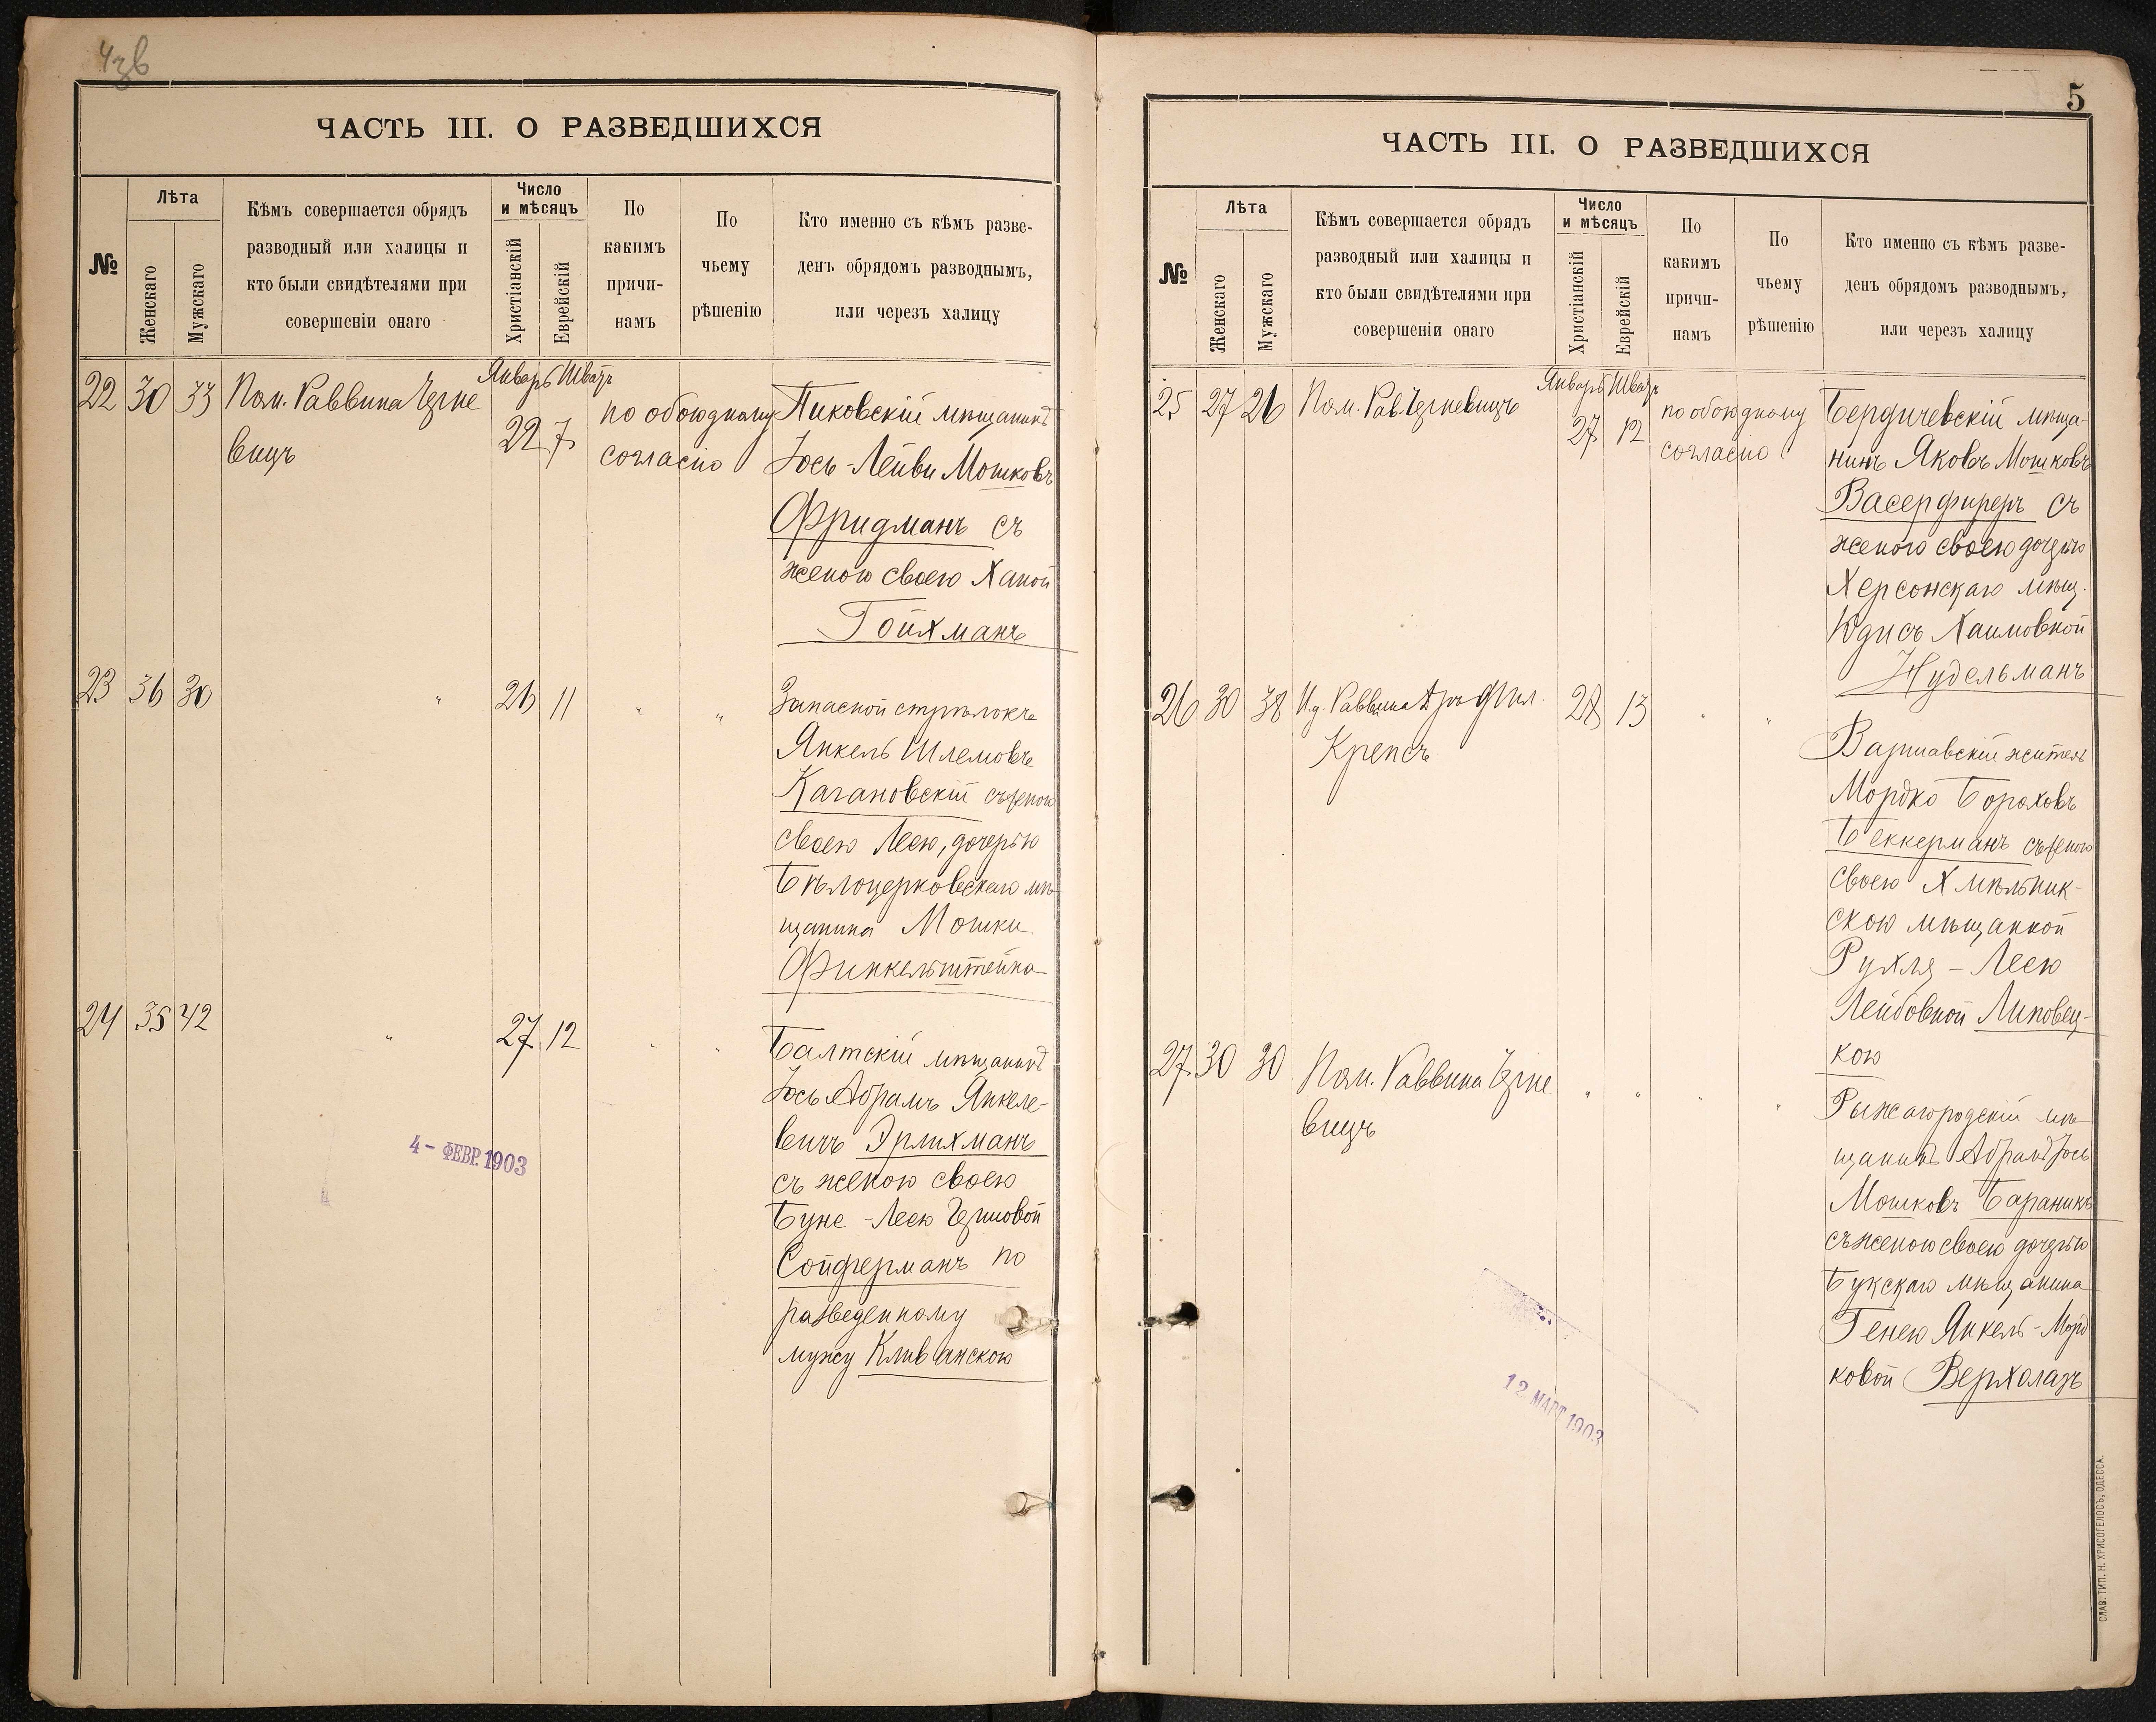 4зв
ЧАСТЬ III. О РАЗВЕДШИХСЯ
№
Лѣта
Женскаго
Мужскаго
Кѣмъ совершается обрядъ
разводный или халицы и
кто были свидѣтелями при
совершеніи онаго
Число
и мѣсяцъ
Христіанскій
Еврейскій
По
какимъ
причи-
намъ
По
чьему
рѣшенію
Кто именно съ кѣмъ разве-
денъ обрядомъ разводнымъ,
или черезъ халицу
22 30 33 Пом. Раввина Черне
вицъ
Январь Шватъ
22 7
по обоюдному
согласію
Пиковскій мѣщанинъ
Іось-Лейви Мошковъ
Фридманъ съ
женою своею Ханой
Гойхманъ
23 36 30 " 26 11 " "
Запасной стрѣлокъ
Янкель Шлемовъ
Кагановскій съ женою
своею Леею, дочерью
Бѣлоцерковскаго мѣ-
щанина Мошки
Финкельштейна
24 35 42 " 27 12 " "
Балтскій мѣщанинъ
Іось Абрамъ Янкеле-
вичъ Эрлихманъ
съ женою своею
Буне-Леею Гершовой
Сойферманъ по
разведенному
мужу Кливанскою
4 - ФЕВР. 1903
5
ЧАСТЬ III. О РАЗВЕДШИХСЯ
№
Лѣта
Женскаго
Мужскаго
Кѣмъ совершается обрядъ
разводный или халицы и
кто были свидѣтелями при
совершеніи онаго
Число
и мѣсяцъ
Христіанскій
Еврейскій
По
какимъ
причи-
намъ
По
чьему
рѣшенію
Кто именно съ кѣмъ разве-
денъ обрядомъ разводнымъ,
или черезъ халицу
25 27 26 Пом. Рав. Черневицъ
Январь Шватъ
27 12
по обоюдному
согласію
Бердичевскій мѣща-
нинъ Яковъ Мошковъ
Васерфиреръ съ
женою своею дочерью
Херсонскаго мѣщ.
Юдисъ Хаимовной
Нудельманъ
26 30 38 И.д. Раввина Д-ръ Фил.
Крепсъ
28 13 " "
Варшавскій житель
Мордко Бороховъ
Беккерманъ съ женою
своею Хмѣльник-
скою мѣщанкой
Рухля-Леею
Лейбовной Липовец-
кою
27 30 30 Пом. Раввина Черне
вицъ
" " " "
Рыжагородскій мѣ-
щанинъ Абрамъ Іось
Мошковъ Бараникъ
съ женою своею дочерью
Букскаго мѣщанина
Генею Янкель-Морд
ковой Верхолазъ
12 МАРТ 1903
СЛАВ. ТИП. Н. ХРИСОГЕЛОСЪ, ОДЕССА.